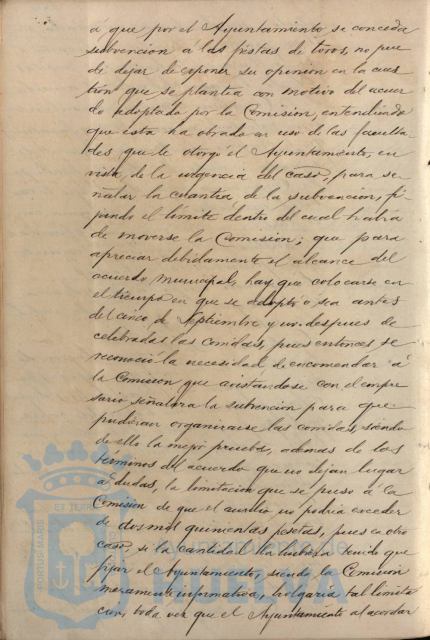 á que por el Ayuntamiento se conceda
subvencion á las fiestas de toros, no pue
de dejar de esponer su opinion en la cues
tión que se plantea con motivo del acuer
do adoptado por la Comision, entendiendo
que ésta ha obrado en uso de las faculta
des que le otorgó el Ayuntamiento, en
vista de la urgencia del caso, para se
ñalar la cuantía de la subvencion, fi
jando el limite dentro del cual habia
de moverse la Comision; que para
apreciar debidamente el alcance del
acuerdo municipal, hay que colocarse en
el tiempo en que se adoptó o sea antes
del cinco de Septiembre y no despues de
celebradas las corridas, pues entonces se
reconoció la necesidad de encomendar á
la Comision que avistandose con el empre
sario señalara la subvencion para que
pudieran organizarse las corridas, siendo
de ello la mejor prueba, ademas de los
términos del acuerdo que no dejan lugar
a dudas, la limitación que se puso á la
Comision de que el ausilio no podria exceder
de dos mil quinientas pesetas, pues en otro
caso, si la cantidad la hubiera tenido que
fijar el Ayuntamiento, siendo la Comision
meramente informativa, holgaria tal limita
cion, toda vez que el Ayuntamiento al acordar